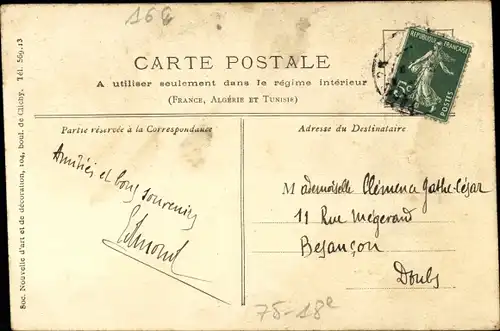 166
CARTE POSTALE
A utiliser seulement dans le régime intérieur
(FRANCE, ALGÉRIE ET TUNISIE)
RÉPUBLIQUE FRANÇAISE
POSTES
Partie réservée à la Correspondance
Adresse du Destinataire
Amitiés et bons souvenirs
Mademoiselle Clémence
11 Rue Mégevand
Besançon
Doubs
75-18e
Soc. Nouvelle d'art et de décoration, 104, boul. de Clichy. Tél. 569.13